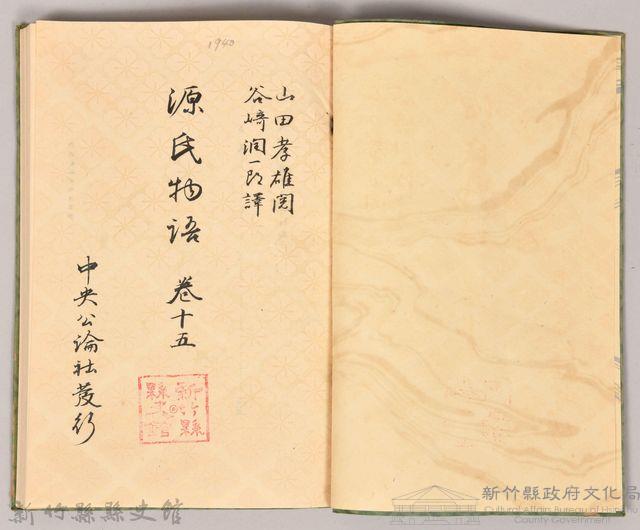 1940
山田孝雄閲
谷崎潤一郎譯
源氏物語 巻十五
中央公論社發行
新竹縣
縣史館
新竹縣縣史館
新竹縣政府文化局
Cultural Affairs Bureau of Hsinchu
County Government